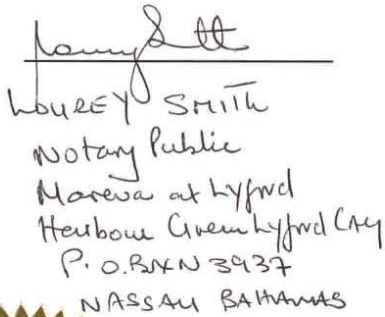 LOUREY SMITH
Notary Public
Mareva at Lyford
Harbour Green Lyford CAY
P.O. BOX N 3937
NASSAU BAHAMAS